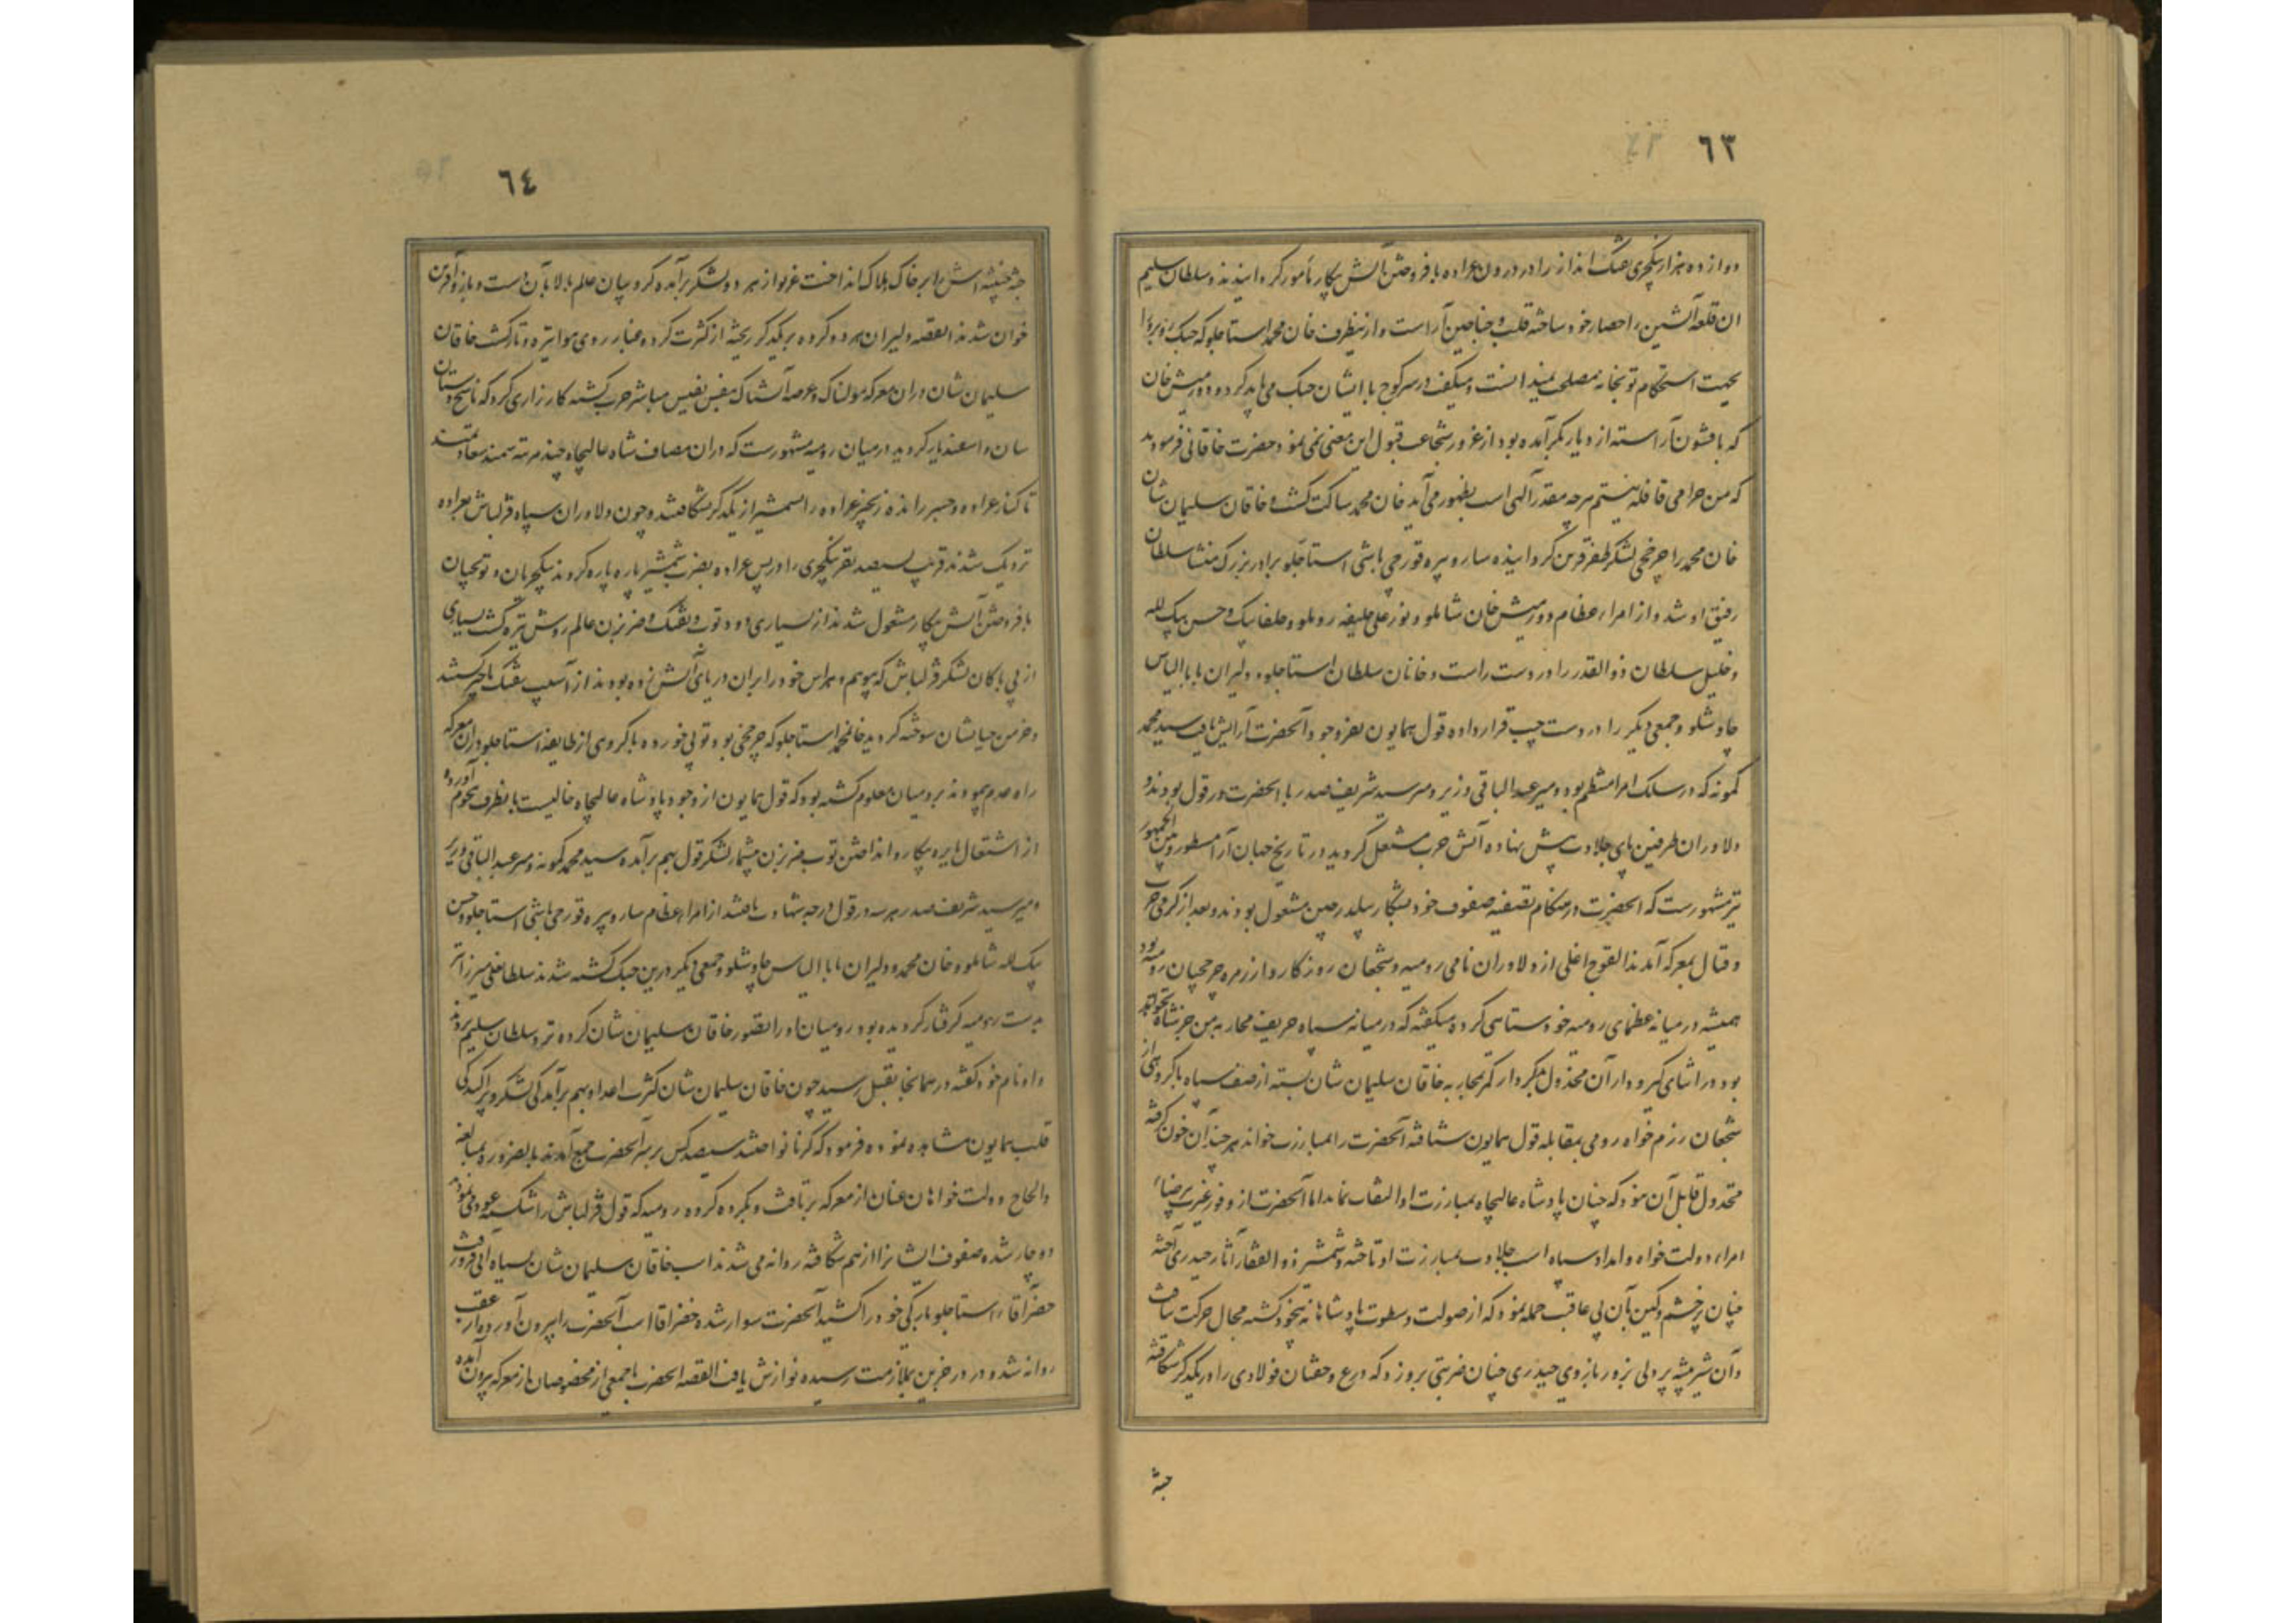 ٦٣
دوازده هزار ینکچری تفنک انداز را در درون عراده بافروختن آتش پیکار مأمور کردانیدند و سلطان سلیم
آن قلعه آتشین را حصار خود ساخته قلب و جناحین آراست و از ینطرف خان محمد استاجلو که جنک روبرو را
بجهت استحکام توپخانه مصلحت نمیدانست و میکفت در سر کوچ با ایشان جنک می باید کرد و دورمیش خان
که با قشون آراسته از دیار بکر آمده بود از غرور شجاعت قبول این معنی نمی نمود حضرت خاقانی فرمودند
که من حرامی قافله نیستم هرچه مقدر آلهی است بظهور می آید خان محمد ساکت کشت و خاقان سلیمان شان
خان محمد را چرخچی لشکر ظفر قرین کردانیده سارو پیره قورچی باشی استاجلو برادر بزرک منتشا سلطان
رفیق او شد و از امراء عظام دورمیش خان شاملو و نور علی خلیفه روملو و خلفا بیک و حسن بیک لله
و خلیل سلطان ذوالقدر را در دست راست و خانان سلطان استاجلو و دلیران بابا الیاس
چاوشلو و جمعی دیکر را در دست چپ قرار داده قول همایون بعز وجود آنحضرت آرایش یافت سید محمد
کمونه که در سلک امرا منتظم بود و میر عبد الباقی وزیر و میر سید شریف صدر با انحضرت در قول بودند و
دلاوران طرفین پای جلادت پیش نهاده آتش حرب مشتعل کردید در تاریخ جهان آرا مسطور و بین الجمهور
نیز مشهورست که انحضرت در هنکام تصفیه صفوف خود بشکار بلدرچین مشغول بودند و بعد از کرمی حرب
و قتال بمعرکه آمدند القوج اغلی از دلاوران نامی رومیه و شجعان روزکار و از زمره چرخچیان رومیه بود
همیشه در میانه عظمای رومیه خود ستائی کرده میکفته که در میانه سپاه حریف محاربه من جز شاه نخواهد
بود در اثنای کیر و دار آن مخذول نابکردار کمر بمحاربه خاقان سلیمان شان بسته از صف سپاه با کروهی از
شجعان رزم خواه رومی بمقابله قول همایون شتافته آنحضرت را بمبارزت خواند هر چند آن خون کرفته
مخذول قابل آن نبود که چنان پادشاه عالیجاه بمبارزت او التفات نماید اما آنحضرت از وفور غیرت بی رضاء
امراء دولت خواه و امداد سپاه اسب جلادت بمبارزت او تاخته و شمشیر ذو الفقار آثار حیدری آخته
چنان بر خشم و کین بآن بی عاقبت حمله نمود که از صولت و سطوت پادشاهانه بیخود کشته مجال حرکت نیافت
و آن شیر بیشه پر دلی بزور بازوی حیدری چنان ضربتی برو زد که درع و خفتان فولادی را در یکدیکر شکافته
جثه
٦٤
جثه خبیثه اش را بر خاک هلاک انداخت غریو از هر دو لشکر برآمده کروبیان عالم بالا بآن دست و بازو آفرین
خوان شدند القصه دلیران هر دو کروه بر یکدیکر ریخته از کثرت کرد و غبار روی هوا تیره و تار کشت خاقان
سلیمان شان در ان معرکه هولناک و عرصه آتشناک بنفس نفیس مباشر حرب کشته کارزاری کرد که ناسخ دستان
سان و اسفندیار کردید در میان رومیه مشهورست که در ان مصاف شاه عالیجاه چند مرتبه سمند سعادتمند
تا کنار عراده و جسر رانده زنجیر عراده را بشمشیر از یکدیکر شکافتند و چون دلاوران سپاه قزلباش بعراده
نزدیک شدند قریب بسیصد نفر ینکچری را در پس عراده بضرب شمشیر پاره پاره کردند ینکچریان و توپچیان
بافروختن آتش پیکار مشغول شدند از بسیاری دود توپ و تفنک و ضربزن عالم روشن تیره کشت بسیاری
از بی باکان لشکر قزلباش که بی بیم و هراس خود را بر ان دریای آتش زده بودند از آسیب تفنک ناچیز کشتند
و خرمن حیاتشان سوخته کردید خانمحمد استاجلو که چرخچی بود توپی خورده با کروهی از طایفه استاجلو در ان معرکه
راه عدم پیمودند بر رومیان معلوم کشته بود که قول همایون از وجود پادشاه عالیجاه خالیست بانطرف هجوم آورده
از اشتعال نایره پیکار و انداختن توپ و ضربزن بیشمار لشکر قول بهم برآمده سید محمد کمونه و میر عبد الباقی وزیر
و میر سید شریف صدر هر سه در قول درجه شهادت یافتند از امراء عظام سارو پیره قورچی باشی استاجلو و حسن
بیک لله شاملو و خان محمد و دلیران بابا الیاس چاوشلو و جمعی دیکر درین جنک کشته شدند سلطانعلی میرزا نیز
بدست رومیه کرفتار کردیده بود رومیان او را تصور خاقان سلیمان شان کرده نزد سلطان سلیم بردند
و او نام خود کفته در همانجا بقتل رسید چون خاقان سلیمان شان کثرت اعدا و بهم برآمدکی لشکر و پراکندکی
قلب همایون مشاهده نموده فرمود که کرنا نواختند سیصد کس بر سر آنحضرت جمع آمدند بالضروره بمبالغه
و الحاح دولت خواهان عنان از معرکه برتافت و بکروه کروه رومیه که قول قزلباش را شکسته عود می نمودند
دوچار شده صفوف ایشانرا از هم شکافته روانه می شدند اسب خاقان سلیمان شان بسیاه آبی فرو رفت
خضر آقاء استاجلو بارکی خود را کشید آنحضرت سوار شده خضر اقا اسب آنحضرت را بیرون آورده از عقب
روانه شد و در درجزین بملازمت رسیده نوازش یافت القصه انحضرت با جمعی از مخصوصان از معرکه بیرون آمده